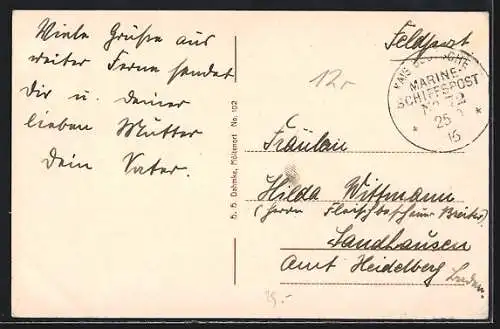 Viele Grüße aus
weiter Ferne sendet
Dir u. deiner
lieben Mutter
Dein Vater.
H. H. Dahmke, Möltenort No. 102
Feldpost.
KAIS. DEUTSCHE
MARINE-
SCHIFFSPOST
No 72
25
* *
16
12,-
Fräulein
Hilda Wittmann
(Herrn Fleischbeschauer Breiter)
Sandhausen
Amt Heidelberg
Baden.
25.-